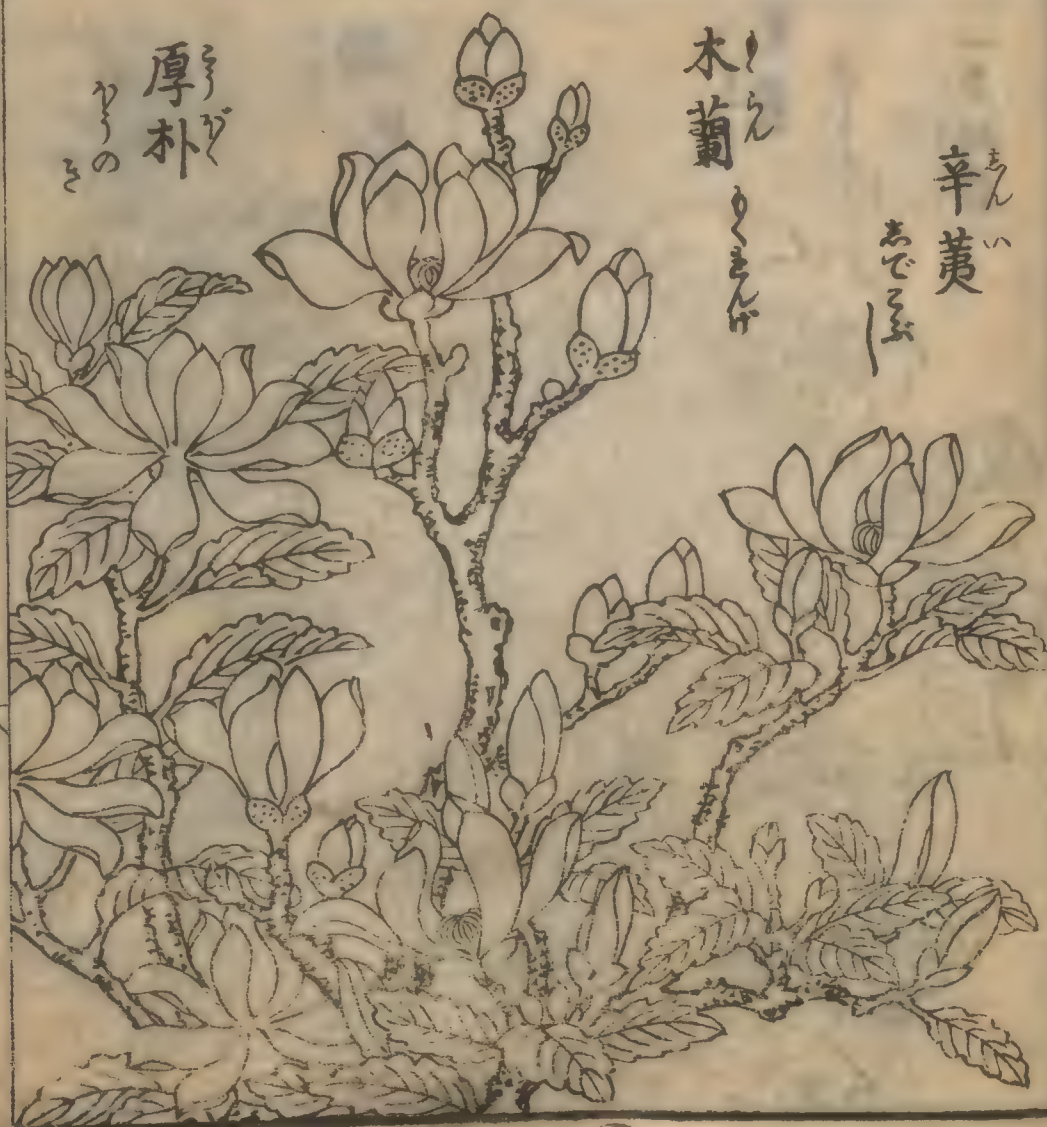 辛夷
しんい
志でこぶし
木蘭
もくらん
もくれんげ
厚朴
こうぼく
ほうのき